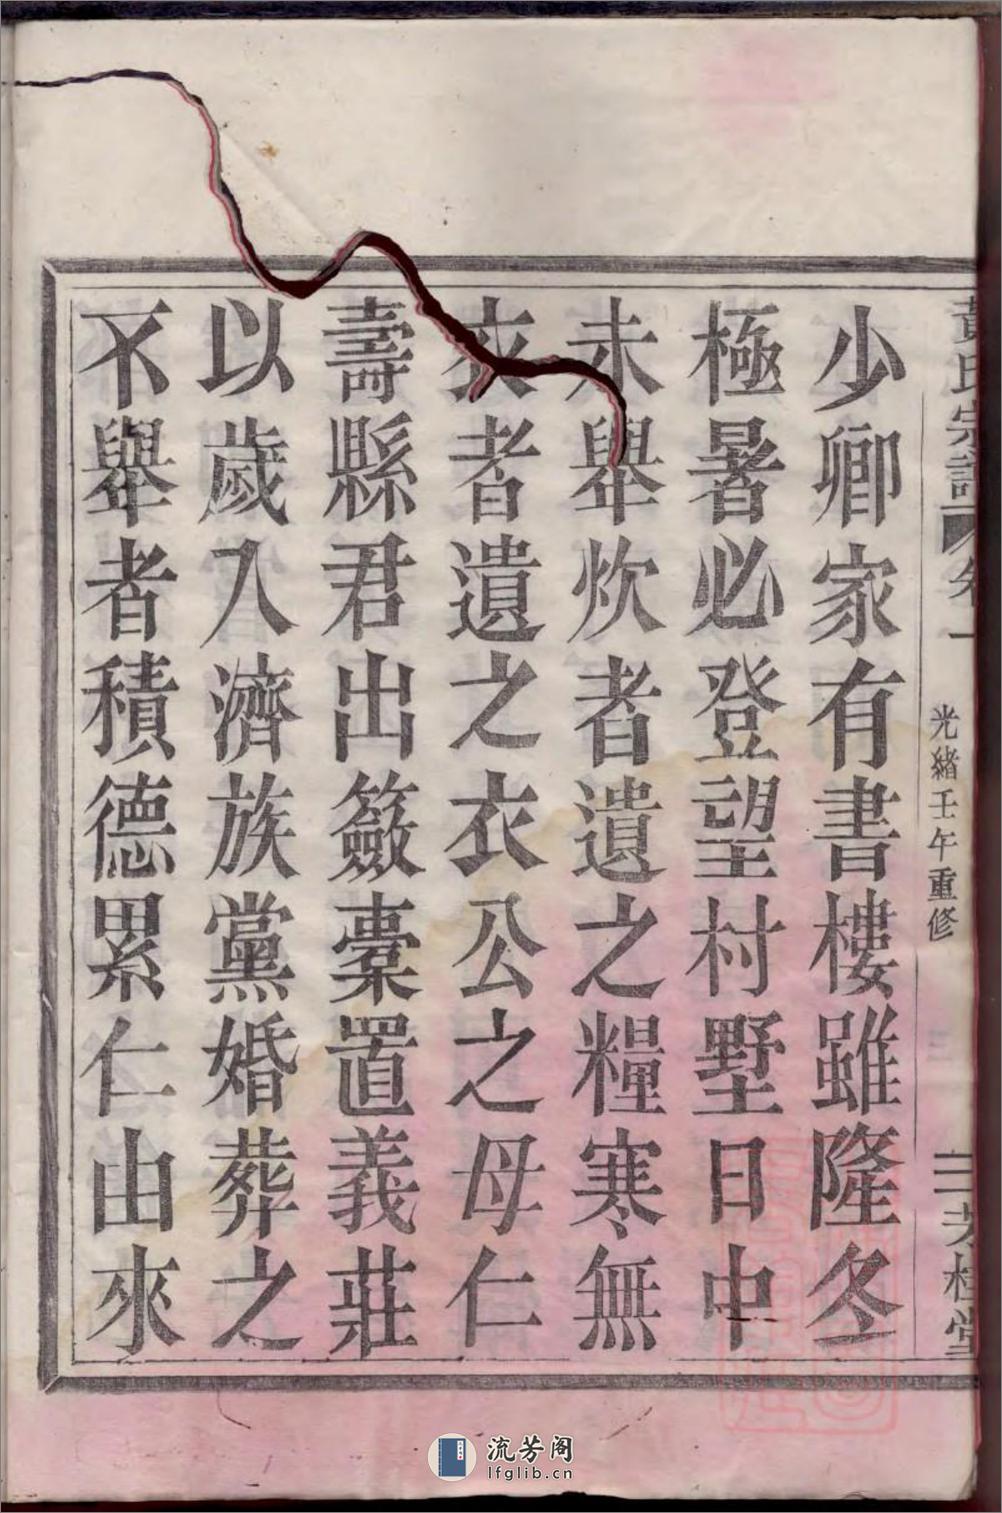 少卿家有書樓雖隆冬
極暑必登望村墅日中
未舉炊者遺之糧寒無
衣者遺之衣公之母仁
壽縣君出簽橐置義莊
以歲入濟族黨婚葬之
不舉者積德累仁由來
黃氏宗譜 卷一
光緒壬午重修
二
桂堂
流芳阁
lfglib.cn